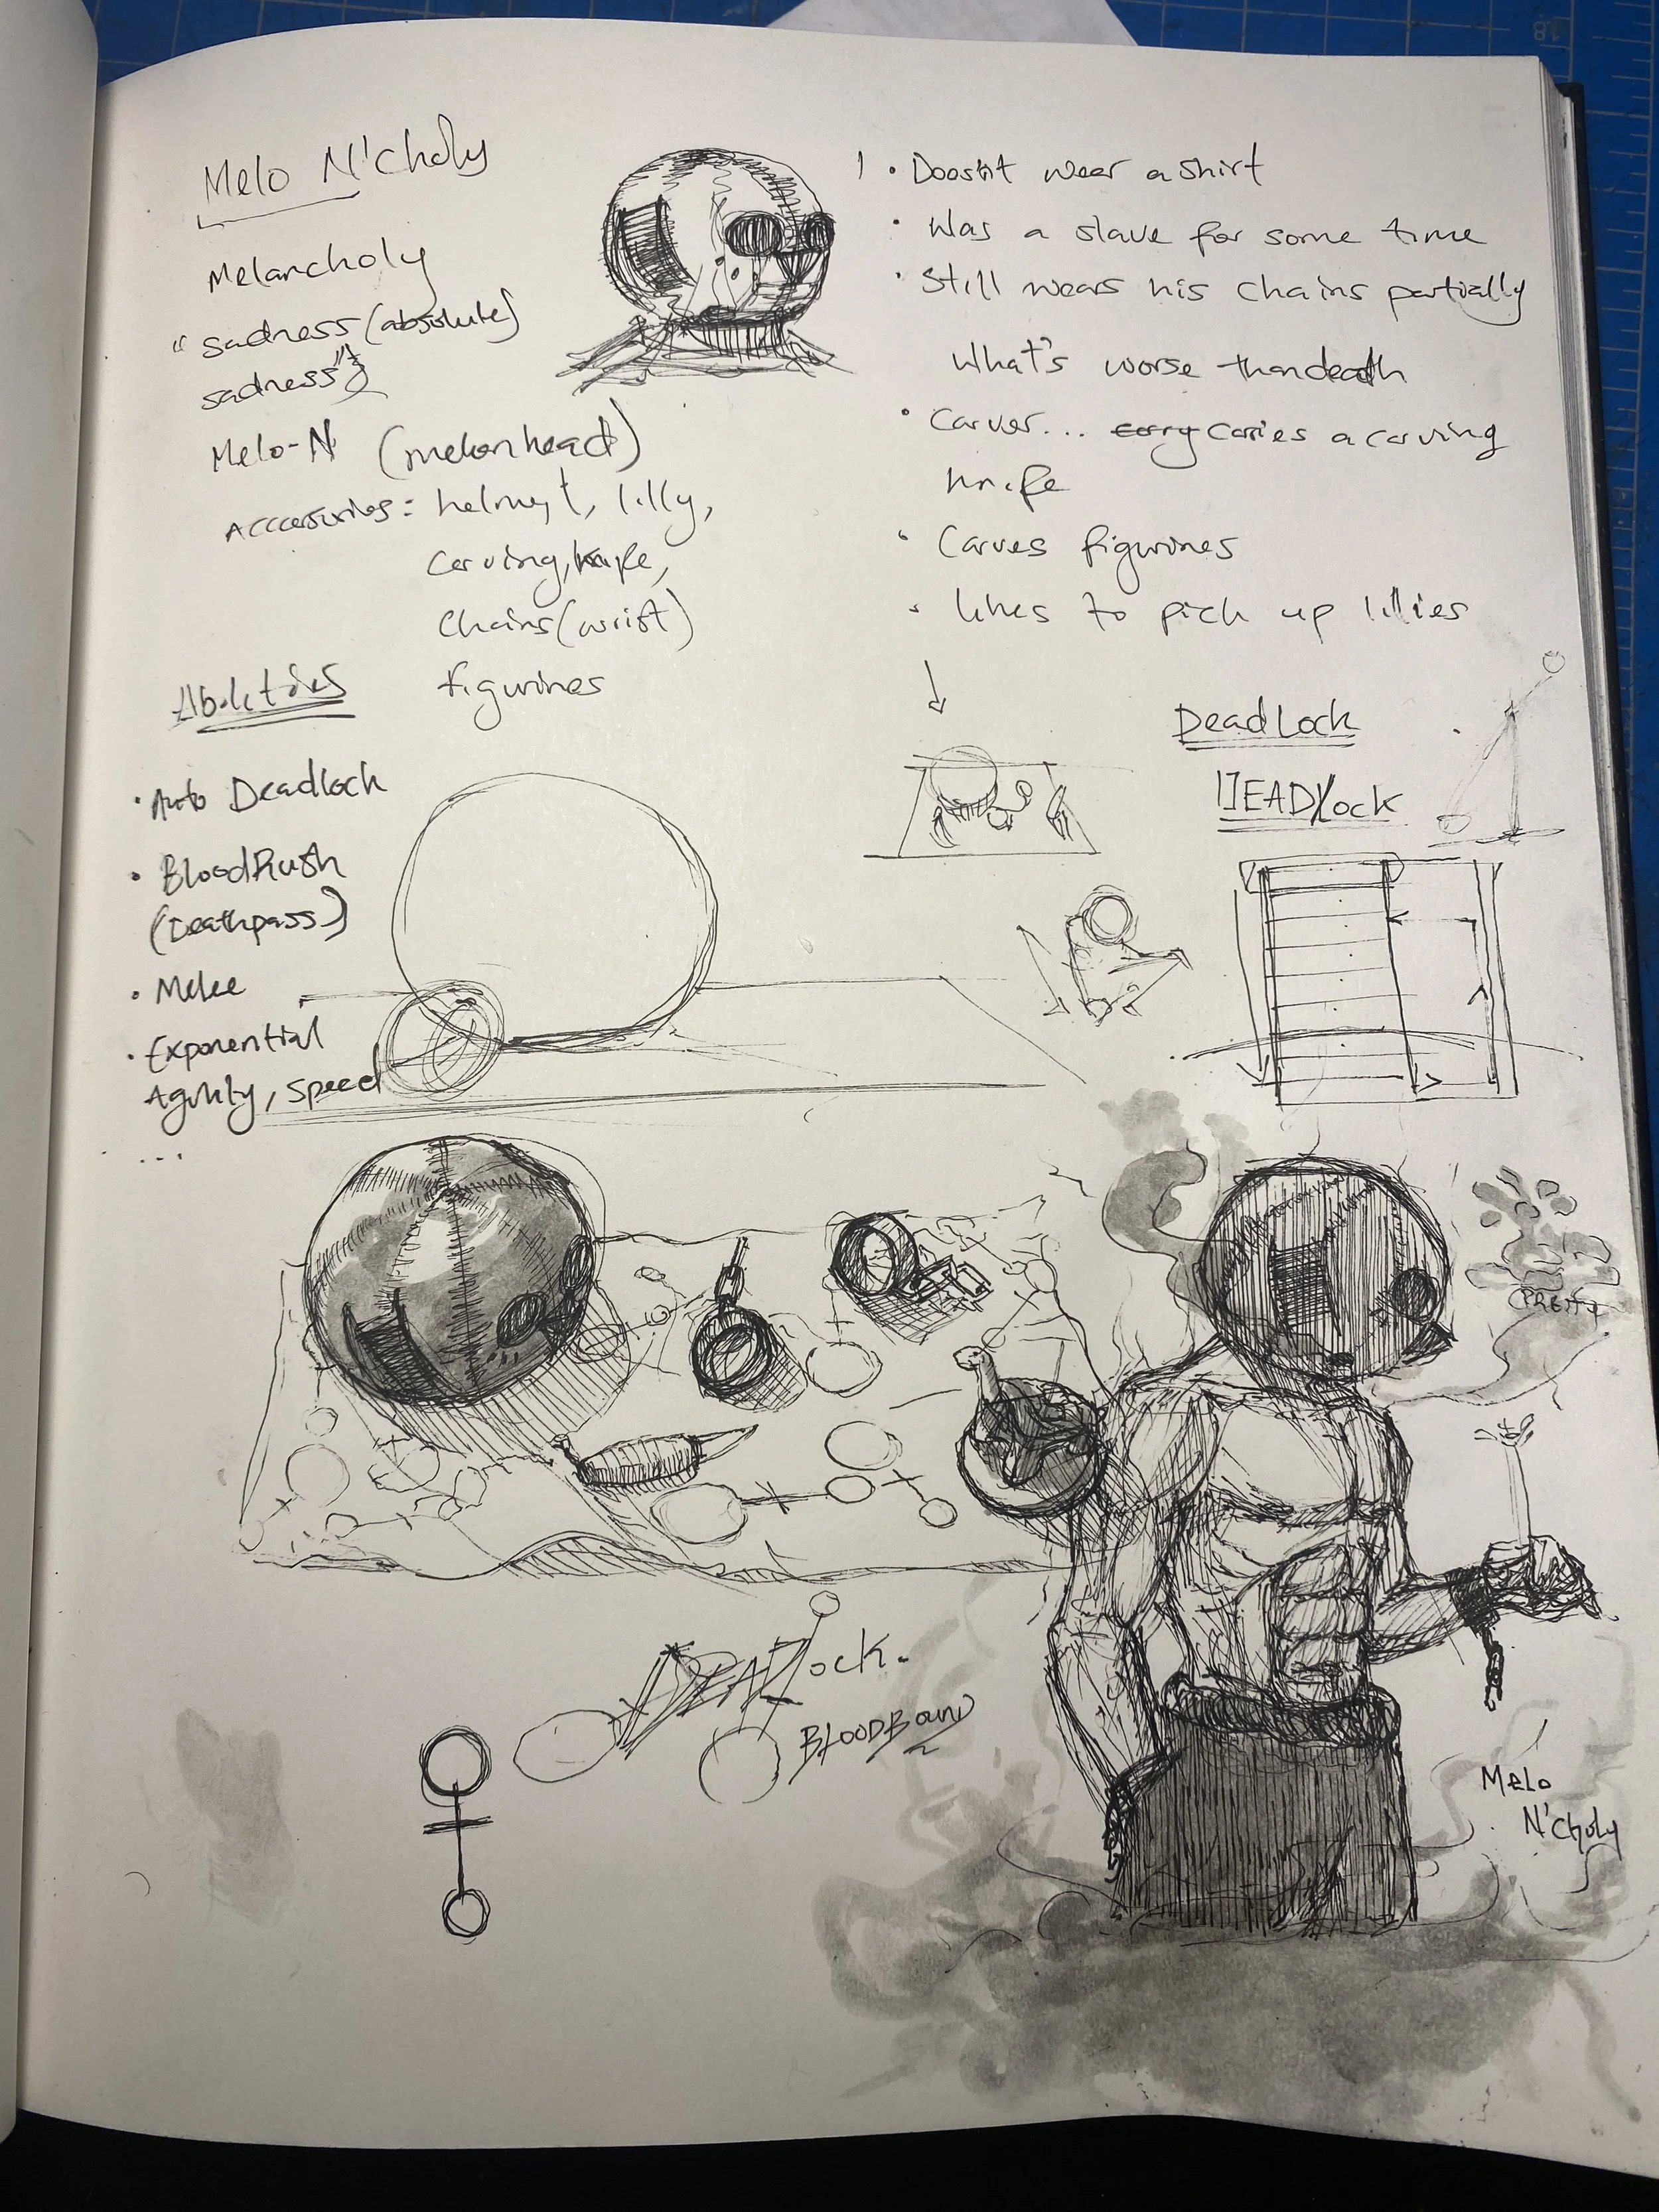 Melo N'choly
Melancholy
"sadness (absolute)
sadness"
Melo-N (melonhead)
Acccessories: helmet, lilly,
carving, knife,
chains (wrist)
figurines
Abilities
• Auto Deadlock
• BloodRush
(Deathpass)
• Melee
• Exponential
Agility, speed
...
1 • Doesn't wear a shirt
• Was a slave for some time
• Still wears his chains partially
What's worse than death
• Carver... carry Carries a carving
knife
• Carves figurines
• likes to pick up lillies
DeadLock
DEAD/Lock
18
PRETTY
DEAD/ock.
BLOODBound
Melo
N'Choly